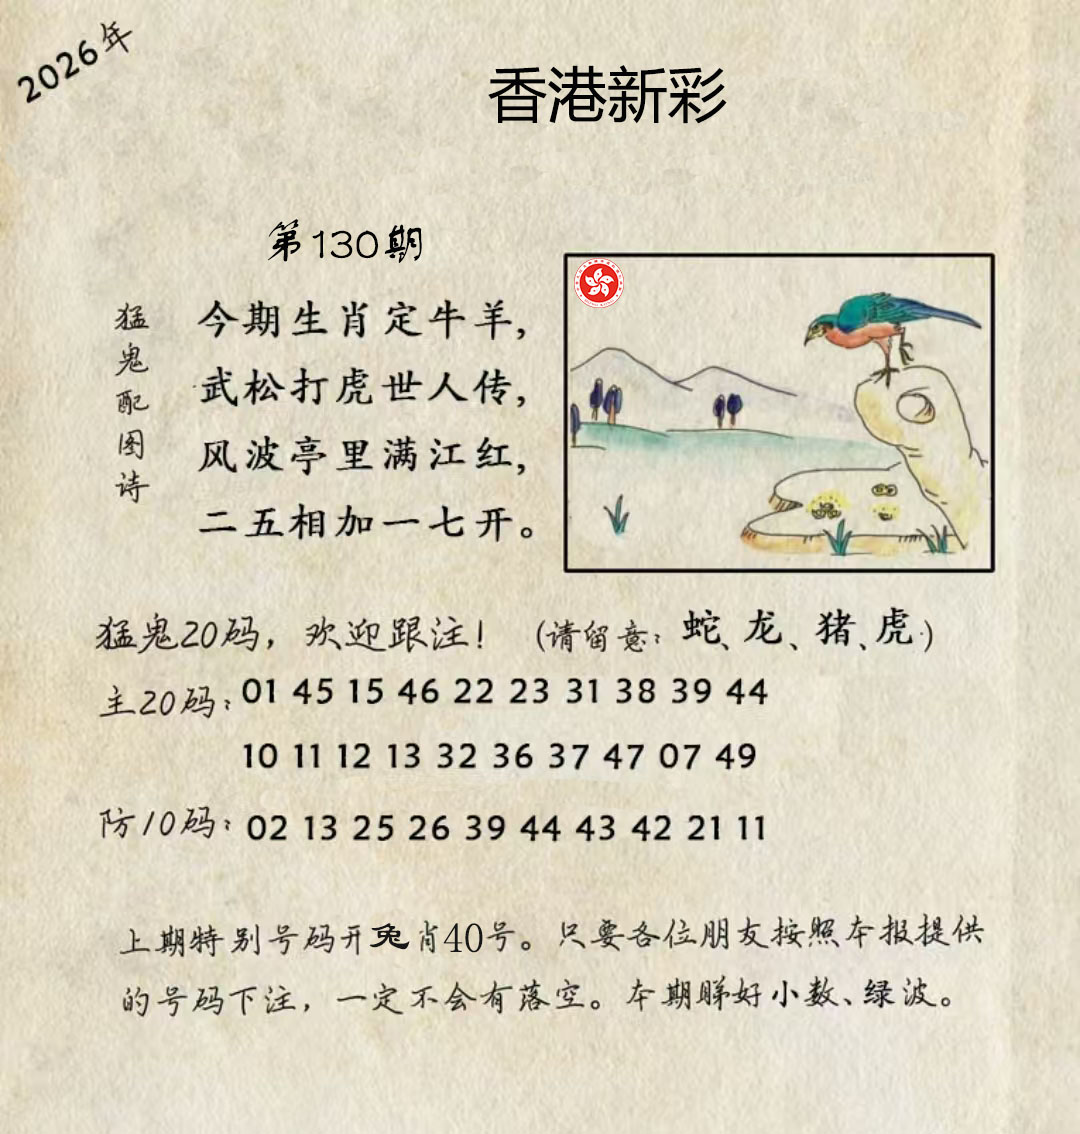 2026年
香港新彩
第130期
猛鬼配图诗
今期生肖定牛羊，
武松打虎世人传，
风波亭里满江红，
二五相加一七开。
猛鬼20码，欢迎跟注！（请留意：蛇、龙、猪、虎）
主20码：01 45 15 46 22 23 31 38 39 44
10 11 12 13 32 36 37 47 07 49
防10码：02 13 25 26 39 44 43 42 21 11
上期特别号码开兔肖40号。只要各位朋友按照本报提供
的号码下注，一定不会有落空。本期睇好小数、绿波。